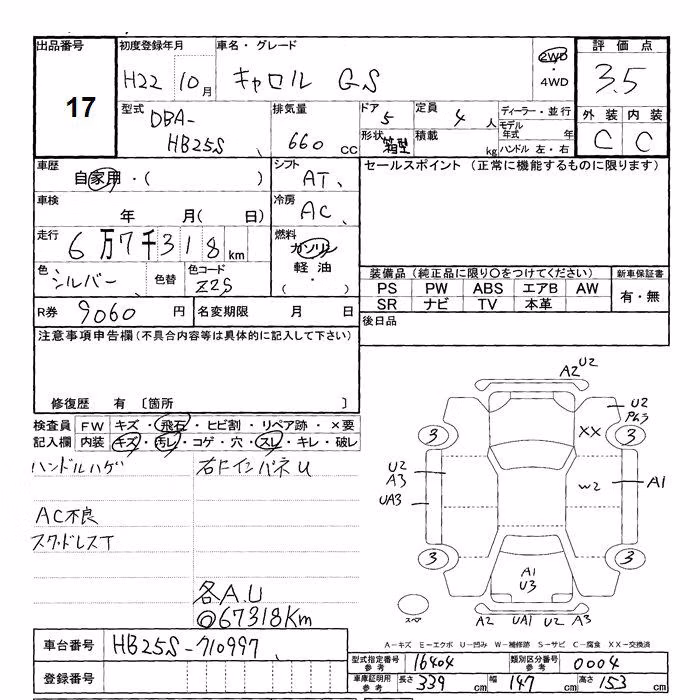 出品番号 17
初度登録年月 H22 10月
車名・グレード キャロル GS
2WD・4WD
評価点 3.5
外装 C 内装 C
型式 DBA-HB25S
排気量 660 cc
ドア 5
形状 箱型
定員 4 人
積載 kg
ディーラー・並行
モデル年式 年
ハンドル 左・右
車歴 自家用・( )
シフト AT
車検 年 月( 日)
冷房 AC
走行 6万7千318km
燃料 ガソリン 軽油・( )
色 シルバー 色替
色コード Z2S
R券 9060 円
名変期限 月 日
セールスポイント(正常に機能するものに限ります)
装備品(純正品に限り○をつけてください)
PS PW ABS エアB AW
SR ナビ TV 本革
新車保証書 有・無
後日品
注意事項申告欄(不具合内容等は具体的に記入して下さい)
修復歴 有 〔箇所 〕
検査員記入欄
FW キズ・飛石・ヒビ割・リペア跡・×要
内装 キズ・汚レ・コゲ・穴・スレ・キレ・破レ
ハンドルハゲ
右Fインパネ U
AC不良
スタッドレスT
各A.U
◎67318Km
A2 U2
U2
3 3
XX
U2
A3
UA3
W2
A1
3 3
A1
U3
スペア
A2 UA1 U2 A3
A-キズ E-エクボ U-凹み W-補修跡 S-サビ C-腐食 XX-交換済
車台番号 HB25S-710997
登録番号
型式指定番号 参考 16404
類別区分番号 参考 0004
車庫証明用 参考 長さ 339 cm 幅 147 cm 高さ 153 cm